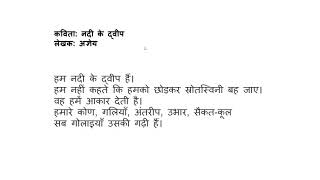 कविता: नदी के द्वीप
लेखक: अज्ञेय
हम नदी के द्वीप हैं।
हम नहीं कहते कि हमको छोड़कर स्रोतस्विनी बह जाए।
वह हमें आकार देती है।
हमारे कोण, गलियाँ, अंतरीप, उभार, सैकत-कूल
सब गोलाइयाँ उसकी गढ़ी हैं।